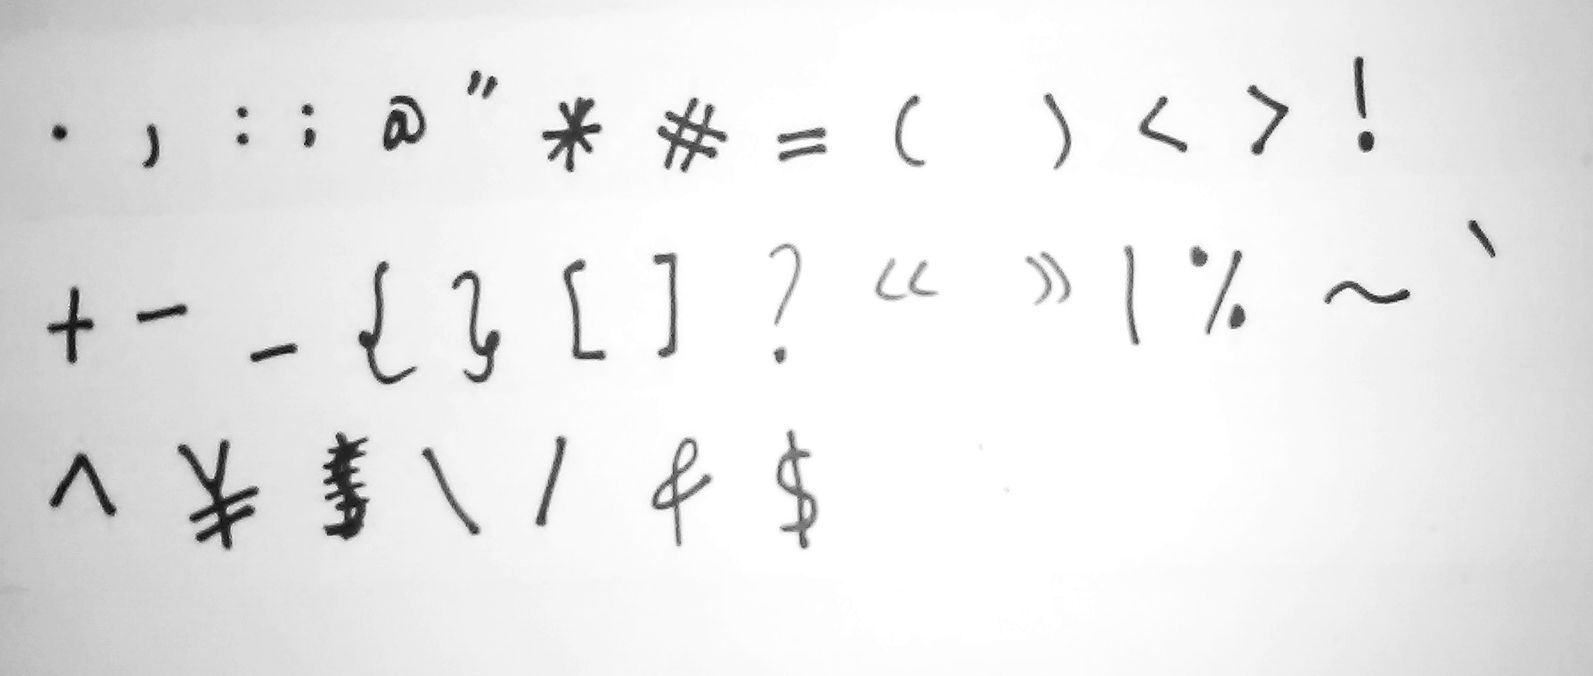 . , : ; @ " * # = ( ) < > !
+ - _ { } [ ] ? « » | % ~ `
^ ¥ \ / & $